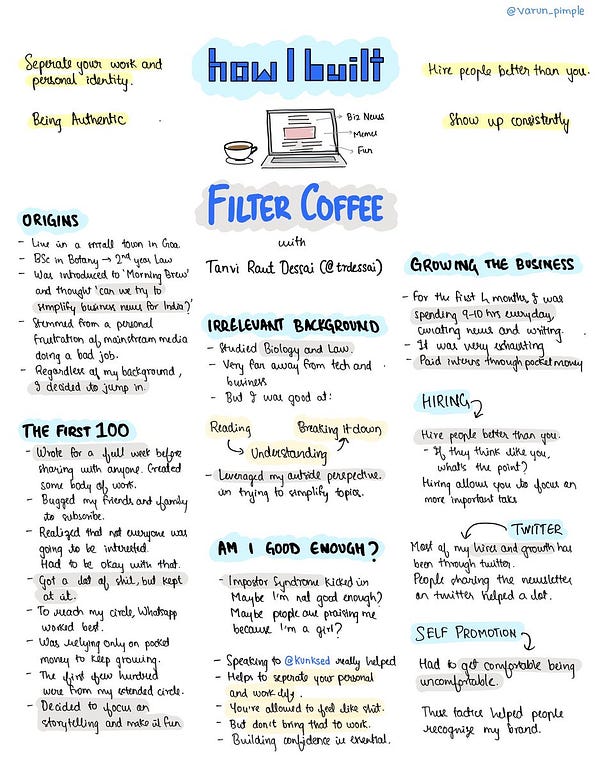 @varun_pimple
Seperate your work and
personal identity.
Being Authentic
how I built
Hire people better than you.
Show up consistently
Biz News
Memes
Fun
FILTER COFFEE
with
Tanvi Raut Dessai (@trdessai)
ORIGINS
- Live in a small town in Goa
- BSc in Botany → 2nd year Law
- Was introduced to 'Morning Brew'
and thought 'can we try to
simplify business news for India?'
- Stemmed from a personal
frustration of mainstream media
doing a bad job.
- Regardless of my background,
I decided to jump in.
THE FIRST 100
- Wrote for a full week before
sharing with anyone. Created
some body of work.
- Bugged my friends and family
to subscribe.
- Realized that not everyone was
going to be interested.
Had to be okay with that.
- Got a lot of shit, but kept
at it.
- To reach my circle, Whatsapp
worked best.
- Was relying only on pocket
money to keep growing.
- The first few hundred
were from my extended circle.
- Decided to focus on
storytelling and make it fun
IRRELEVANT BACKGROUND
- Studied Biology and Law.
- Very far away from tech and
business
- But I was good at:
Reading Breaking it down
Understanding
- Leveraged my outside perspective
in trying to simplify topics.
AM I GOOD ENOUGH?
- Impostor Syndrome kicked in
Maybe I'm not good enough?
Maybe people are praising me
because I'm a girl?
- Speaking to @kunksed really helped
- Helps to seperate your personal
and work life.
- You're allowed to feel like shit.
- But don't bring that to work.
- Building confidence is essential.
GROWING THE BUSINESS
- For the first 4 months, I was
spending 9-10 hrs everyday,
curating news and writing.
- It was very exhausting
- Paid interns through pocket money
HIRING
Hire people better than you.
- If they think like you,
what's the point?
Hiring allows you to focus on
more important taks
TWITTER
Most of my hires and growth has
been through twitter.
People sharing the newsletter
on twitter helped a lot.
SELF PROMOTION
Had to get comfortable being
uncomfortable.
These tactics helped people
recognize my brand.